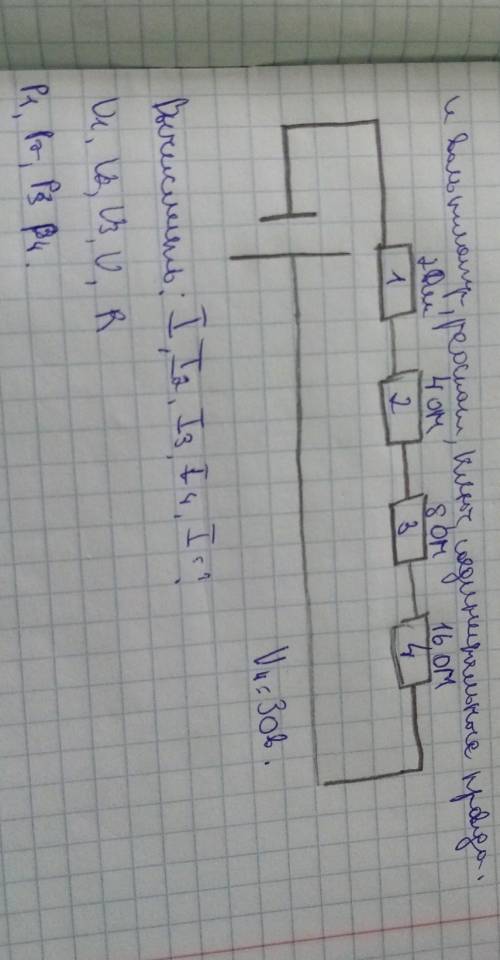 и вольтметр, реостат, ключ, соединительные провода.
2 Ом 4 Ом 8 Ом 16 Ом
1 2 3 4
U4=30в.
Вычислить: I, I2, I3, I4, I
U1, U2, U3, U, R
P1, P2, P3 P4.